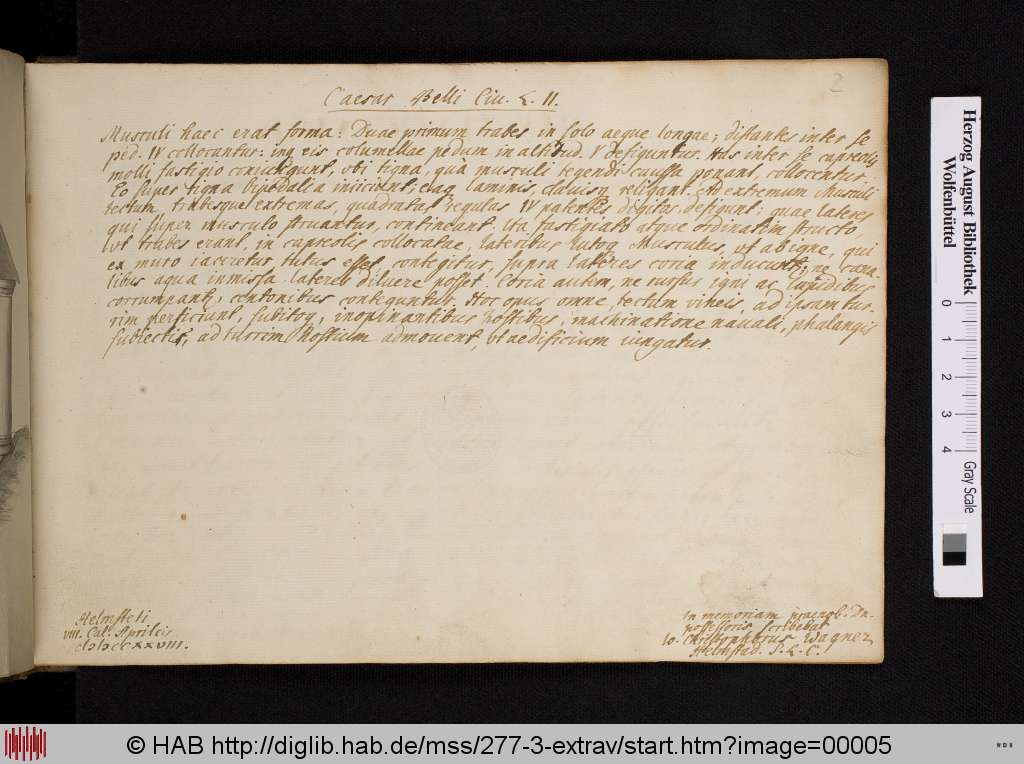 2
Caesar Belli Ciu. L. II.
Musculi haec erat forma: Duae primum trabes in solo aeque longae, distantes inter se
ped. IV collocantur: inq eis columellae pedum in altitud. V defiguntur. Has inter se capreolis
molli fastigio coniungunt, vbi tigna, quà musculi tegendi caussa ponant, collocentur.
Eo super tigna bipedalia iniiciunt, eaq laminis, clauisq religant. Ad extremum Musculi
tectum trabesque extremas, quadratas regulas IV patentes digitos defigunt, quae lateres
qui super musculo struantur, contineant. Ita fastigiato atque ordinatim structo,
vt trabes erant, in capreolis collocatae, lateribus lutoq Musculus, vt ab igne, qui
ex muro iaceretur tutus esset contegitur, supra lateres coria inducuntr, ne cana-
libus aqua inmissa lateres diluere posset. Coria autem, ne rursus igni ac lapidibus
corrumpantr, centonibus conteguntur. Hoc opus omne, tectum vineis, ad ipsam tur-
rim perficiunt, subitoq, inopinantibus hostibus, machinatione nauali, phalangis
subiectis, ad turrim hostium admouent, vt aedificium iungatur.
Helmsteti
VIII. Cal. Aprileis
cIɔIɔccXXVIII.
In memoriam praenob. Dn.
possessoris scribebat
Io. Christophorus Wagner,
Helmstad. S. L. C.
Herzog August Bibliothek
Wolfenbüttel
0 1 2 3 4 Gray Scale
HAB © HAB http://diglib.hab.de/mss/277-3-extrav/start.htm?image=00005 WDB